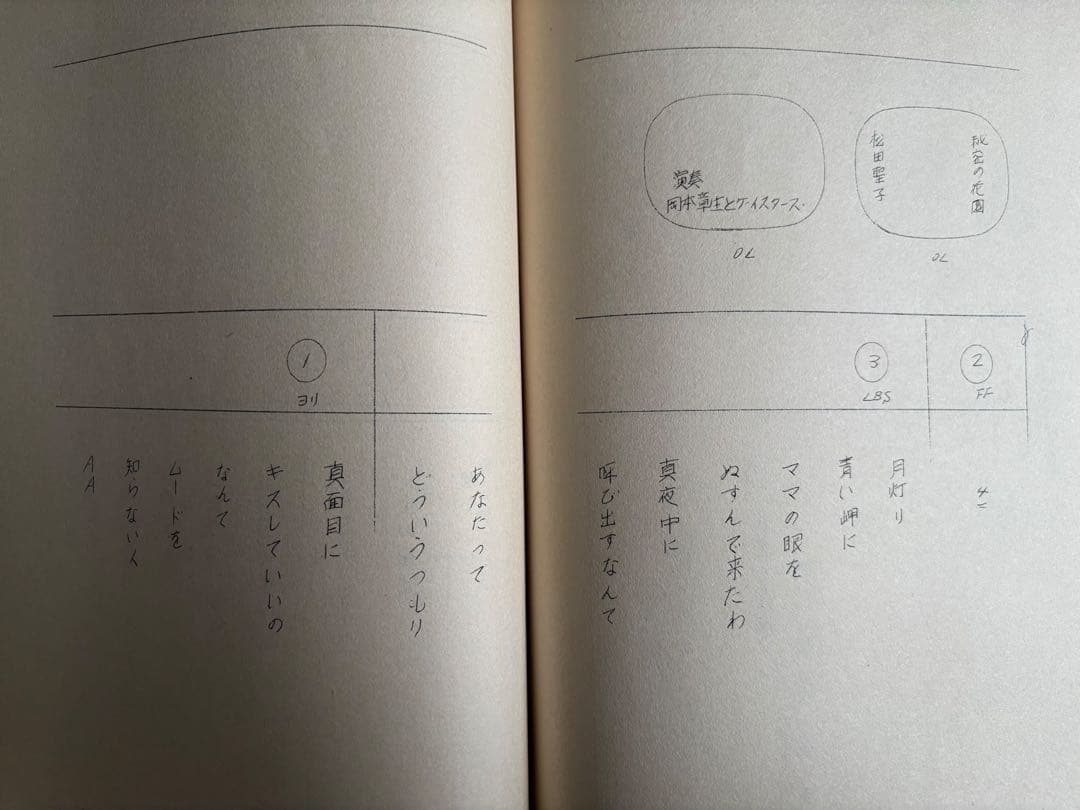 秘密の花園
松田聖子
OL
演奏
岡本章生とゲイスターズ
OL
②
FF
③
LBS
月灯り
青い岬に
ママの眼を
ぬすんで来たわ
真夜中に
呼び出すなんて
①
ヨリ
あなたって
どういうつもり
真面目に
キスしていいの
なんて
ムードを
知らない人
AA